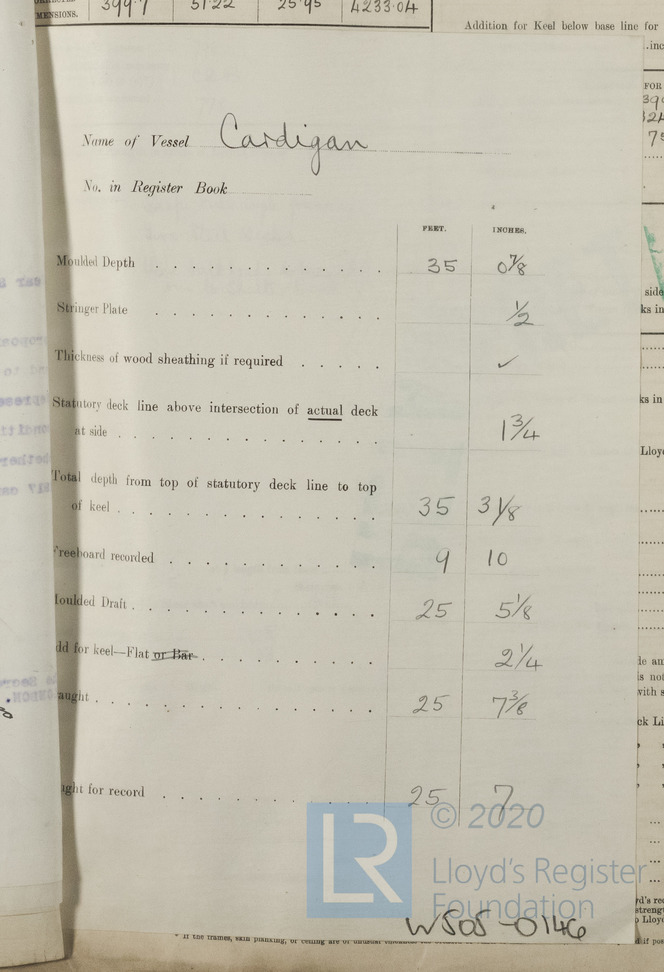 MENSIONS. 399.7 51.22 25.95 4233.04
Addition for Keel below base line for
Name of Vessel Cardigan
No. in Register Book
FEET. INCHES.
Moulded Depth 35 0 7/8
Stringer Plate 1/2
Thickness of wood sheathing if required ✓
Statutory deck line above intersection of actual deck
at side 1 3/4
Total depth from top of statutory deck line to top
of keel 35 3 1/8
Freeboard recorded 9 10
Moulded Draft 25 5 1/8
dd for keel—Flat or Bar 2 1/4
aught 25 7 3/8
ught for record 25 7
LR © 2020
Lloyd's Register
Foundation
W505-0146
* If the frames, skin planking, or ceiling are of unusual